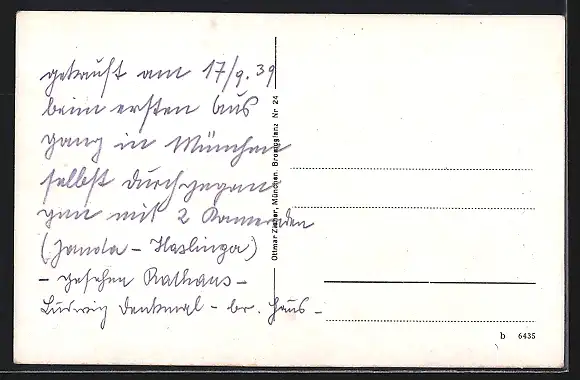 gekauft am 17/9. 39
beim ersten Aus
gang in München
selbst durchgegan
gen mit 2 Kameraden
(Janota - Haslinger)
- gesehen Rathaus -
Ludwig Denkmal - br. Haus -
Ottmar Zieher, München. Bromglanz Nr 24
b 6435